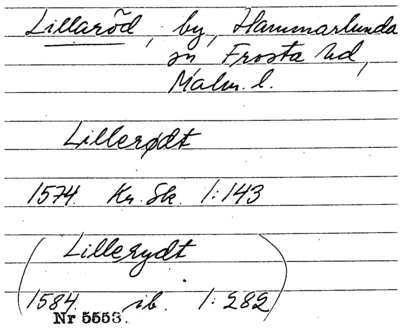 Lillaröd, by, Hammarlunda
sn Frosta hd,
Malm. l.
Lillerødt
1574. Kr. Sk. 1:143
(Lillerydt
1584. ib. 1:282)
Nr 5553.